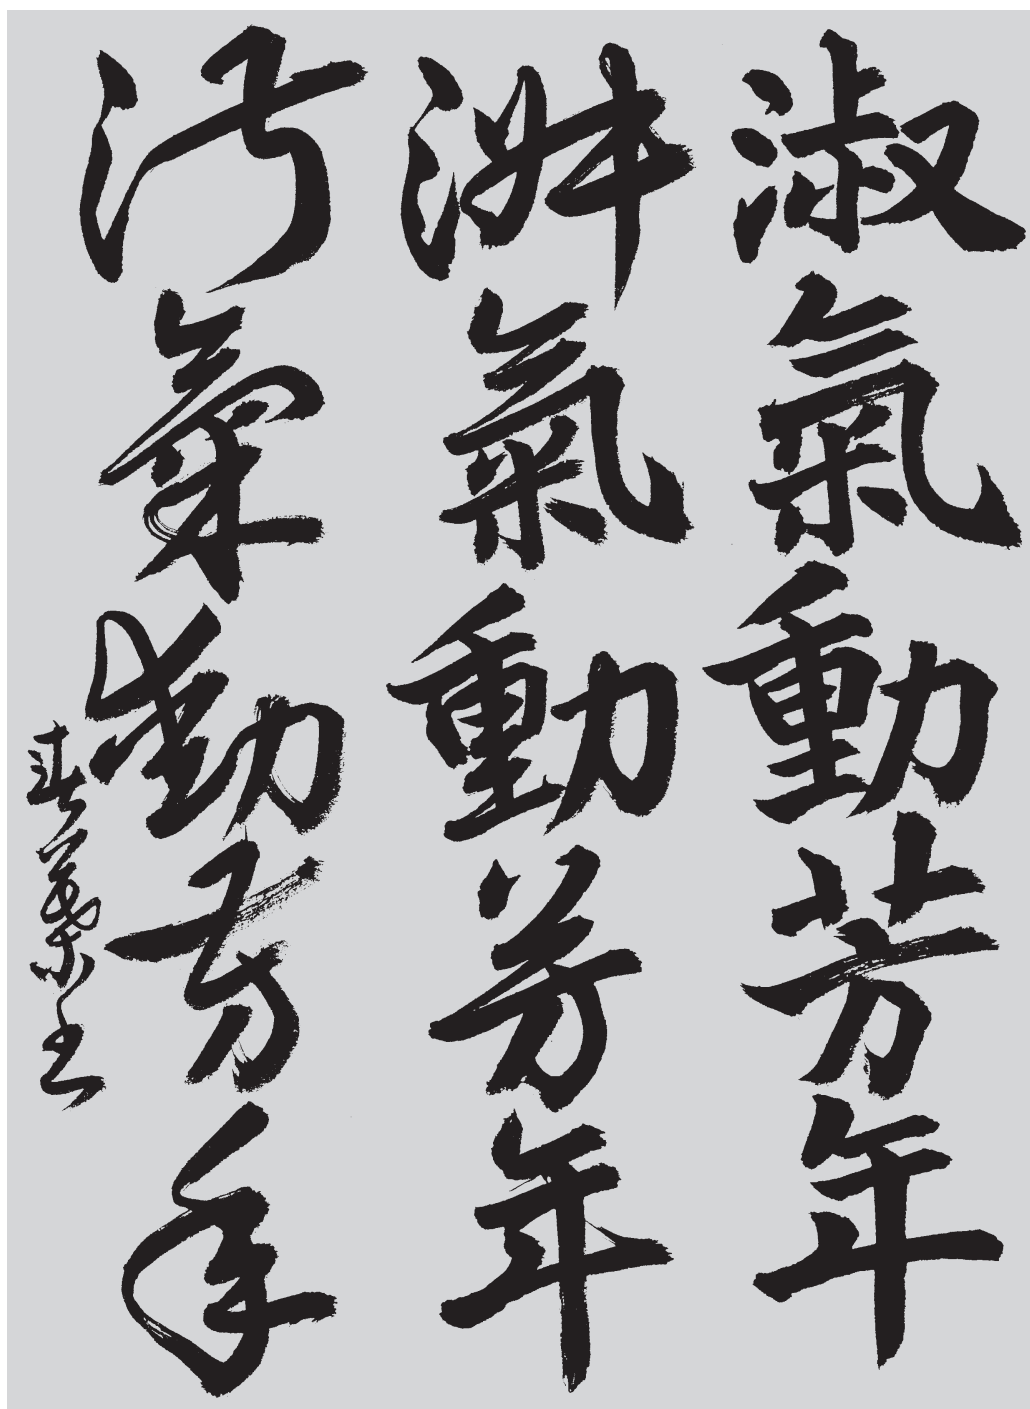 淑氣動芳年
淑氣動芳年
淑氣動芳年